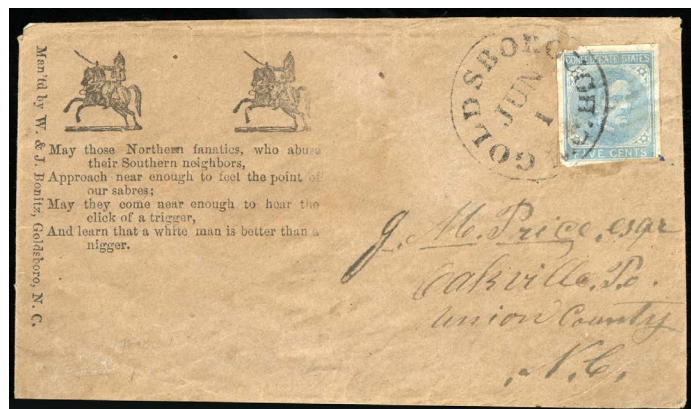 Man'd by W. & J. Bonitz, Goldsboro, N. C.
May those Northern fanatics, who abuse
their Southern neighbors,
Approach near enough to feel the point of
our sabres;
May they come near enough to hear the
click of a trigger,
And learn that a white man is better than a
nigger.
GOLDSBORO
JUN
1
CONFEDERATE STATES
FIVE CENTS
J. M. Price, esqr
Oakville, Po.
Union County
N.C.